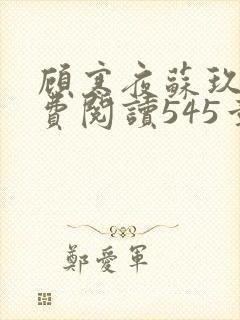 顾寒夜蘇玖
費閱讀545
鄭愛軍